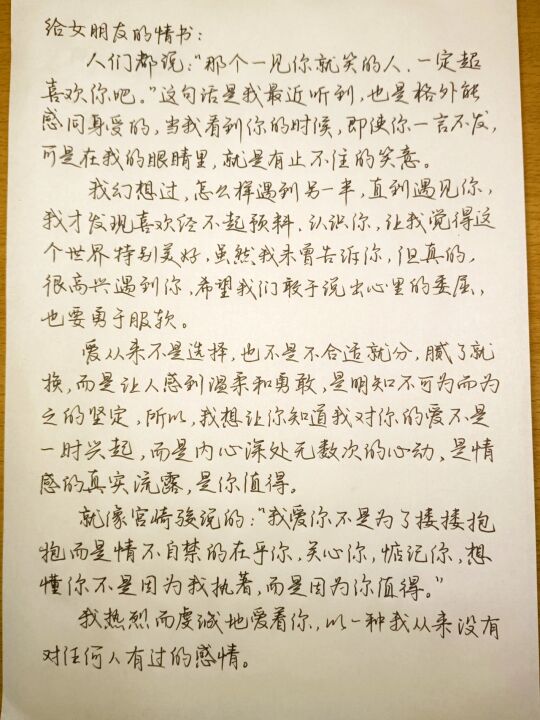 给女朋友的情书：
人们都说：“那个一见你就笑的人，一定超
喜欢你吧。”这句话是我最近听到，也是格外能
感同身受的，当我看到你的时候，即使你一言不发，
可是在我的眼睛里，就是有止不住的笑意。
我幻想过，怎么样遇到另一半，直到遇见你，
我才发现喜欢经不起预料，认识你，让我觉得这
个世界特别美好，虽然我未曾告诉你，但真的，
很高兴遇到你，希望我们敢于说出心里的委屈，
也要勇于服软。
爱从来不是选择，也不是不合适就分，腻了就
换，而是让人感到温柔和勇敢，是明知不可为而为
之的坚定，所以，我想让你知道我对你的爱不是
一时兴起，而是内心深处无数次的心动，是情
感的真实流露，是你值得。
就像宫崎骏说的：“我爱你不是为了搂搂抱
抱而是情不自禁的在乎你，关心你，惦记你，想
懂你不是因为我执著，而是因为你值得。”
我热烈而虔诚地爱着你，以一种我从来没有
对任何人有过的感情。